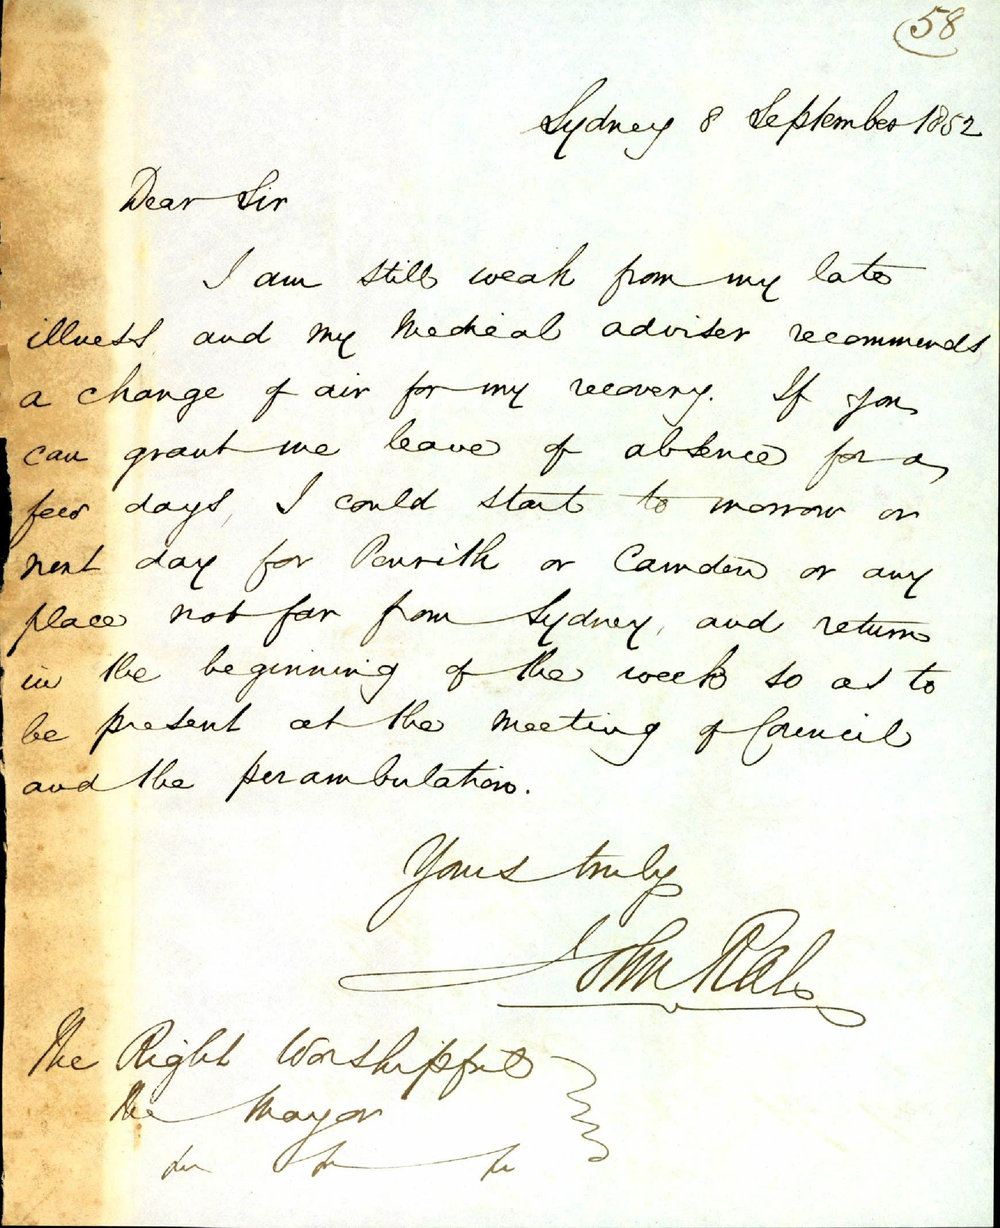 58
Sydney 8 September 1852
Dear Sir
I am still weak from my late
illness, and my Medical adviser recommends
a change of air for my recovery. If you
can grant me leave of absence for a
few days, I could start to morrow or
next day for Penrith or Camden or any
place not far from Sydney, and return
in the beginning of the week so as to
be present at the Meeting of Council
and the perambulation.
Yours truly
John Rae
The Right Worshipful
the Mayor